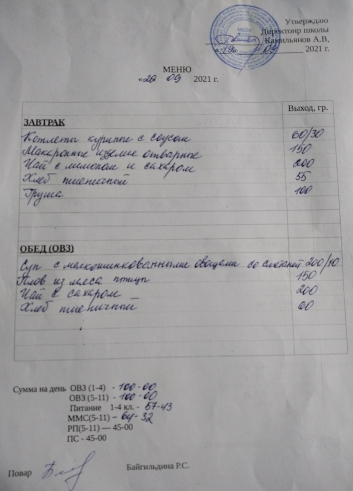 Утверждаю
Директоир школы
Камильянов А.В,
«29» 09 2021 г.
МЕНЮ
«29 09 2021 г.
Выход, гр.
ЗАВТРАК
Котлеты куриные с соусом 60/30
Макаронные изделие отварные 150
Чай с лимоном и сахаром 200
Хлеб пшеничный 55
Груша 100
ОБЕД (ОВЗ)
Суп с мелкошинкованными овощами со сметаной 200/10
Плов из мяса птицы 150
Чай с сахаром 200
Хлеб пшеничный 60
Сумма на день ОВЗ (1-4) - 100-00
ОВЗ (5-11) - 100-00
Питание 1-4 кл. - 57-43
ММС(5-11) - 64-32
РП(5-11) — 45-00
ПС - 45-00
Повар Байгильдина Р.С.